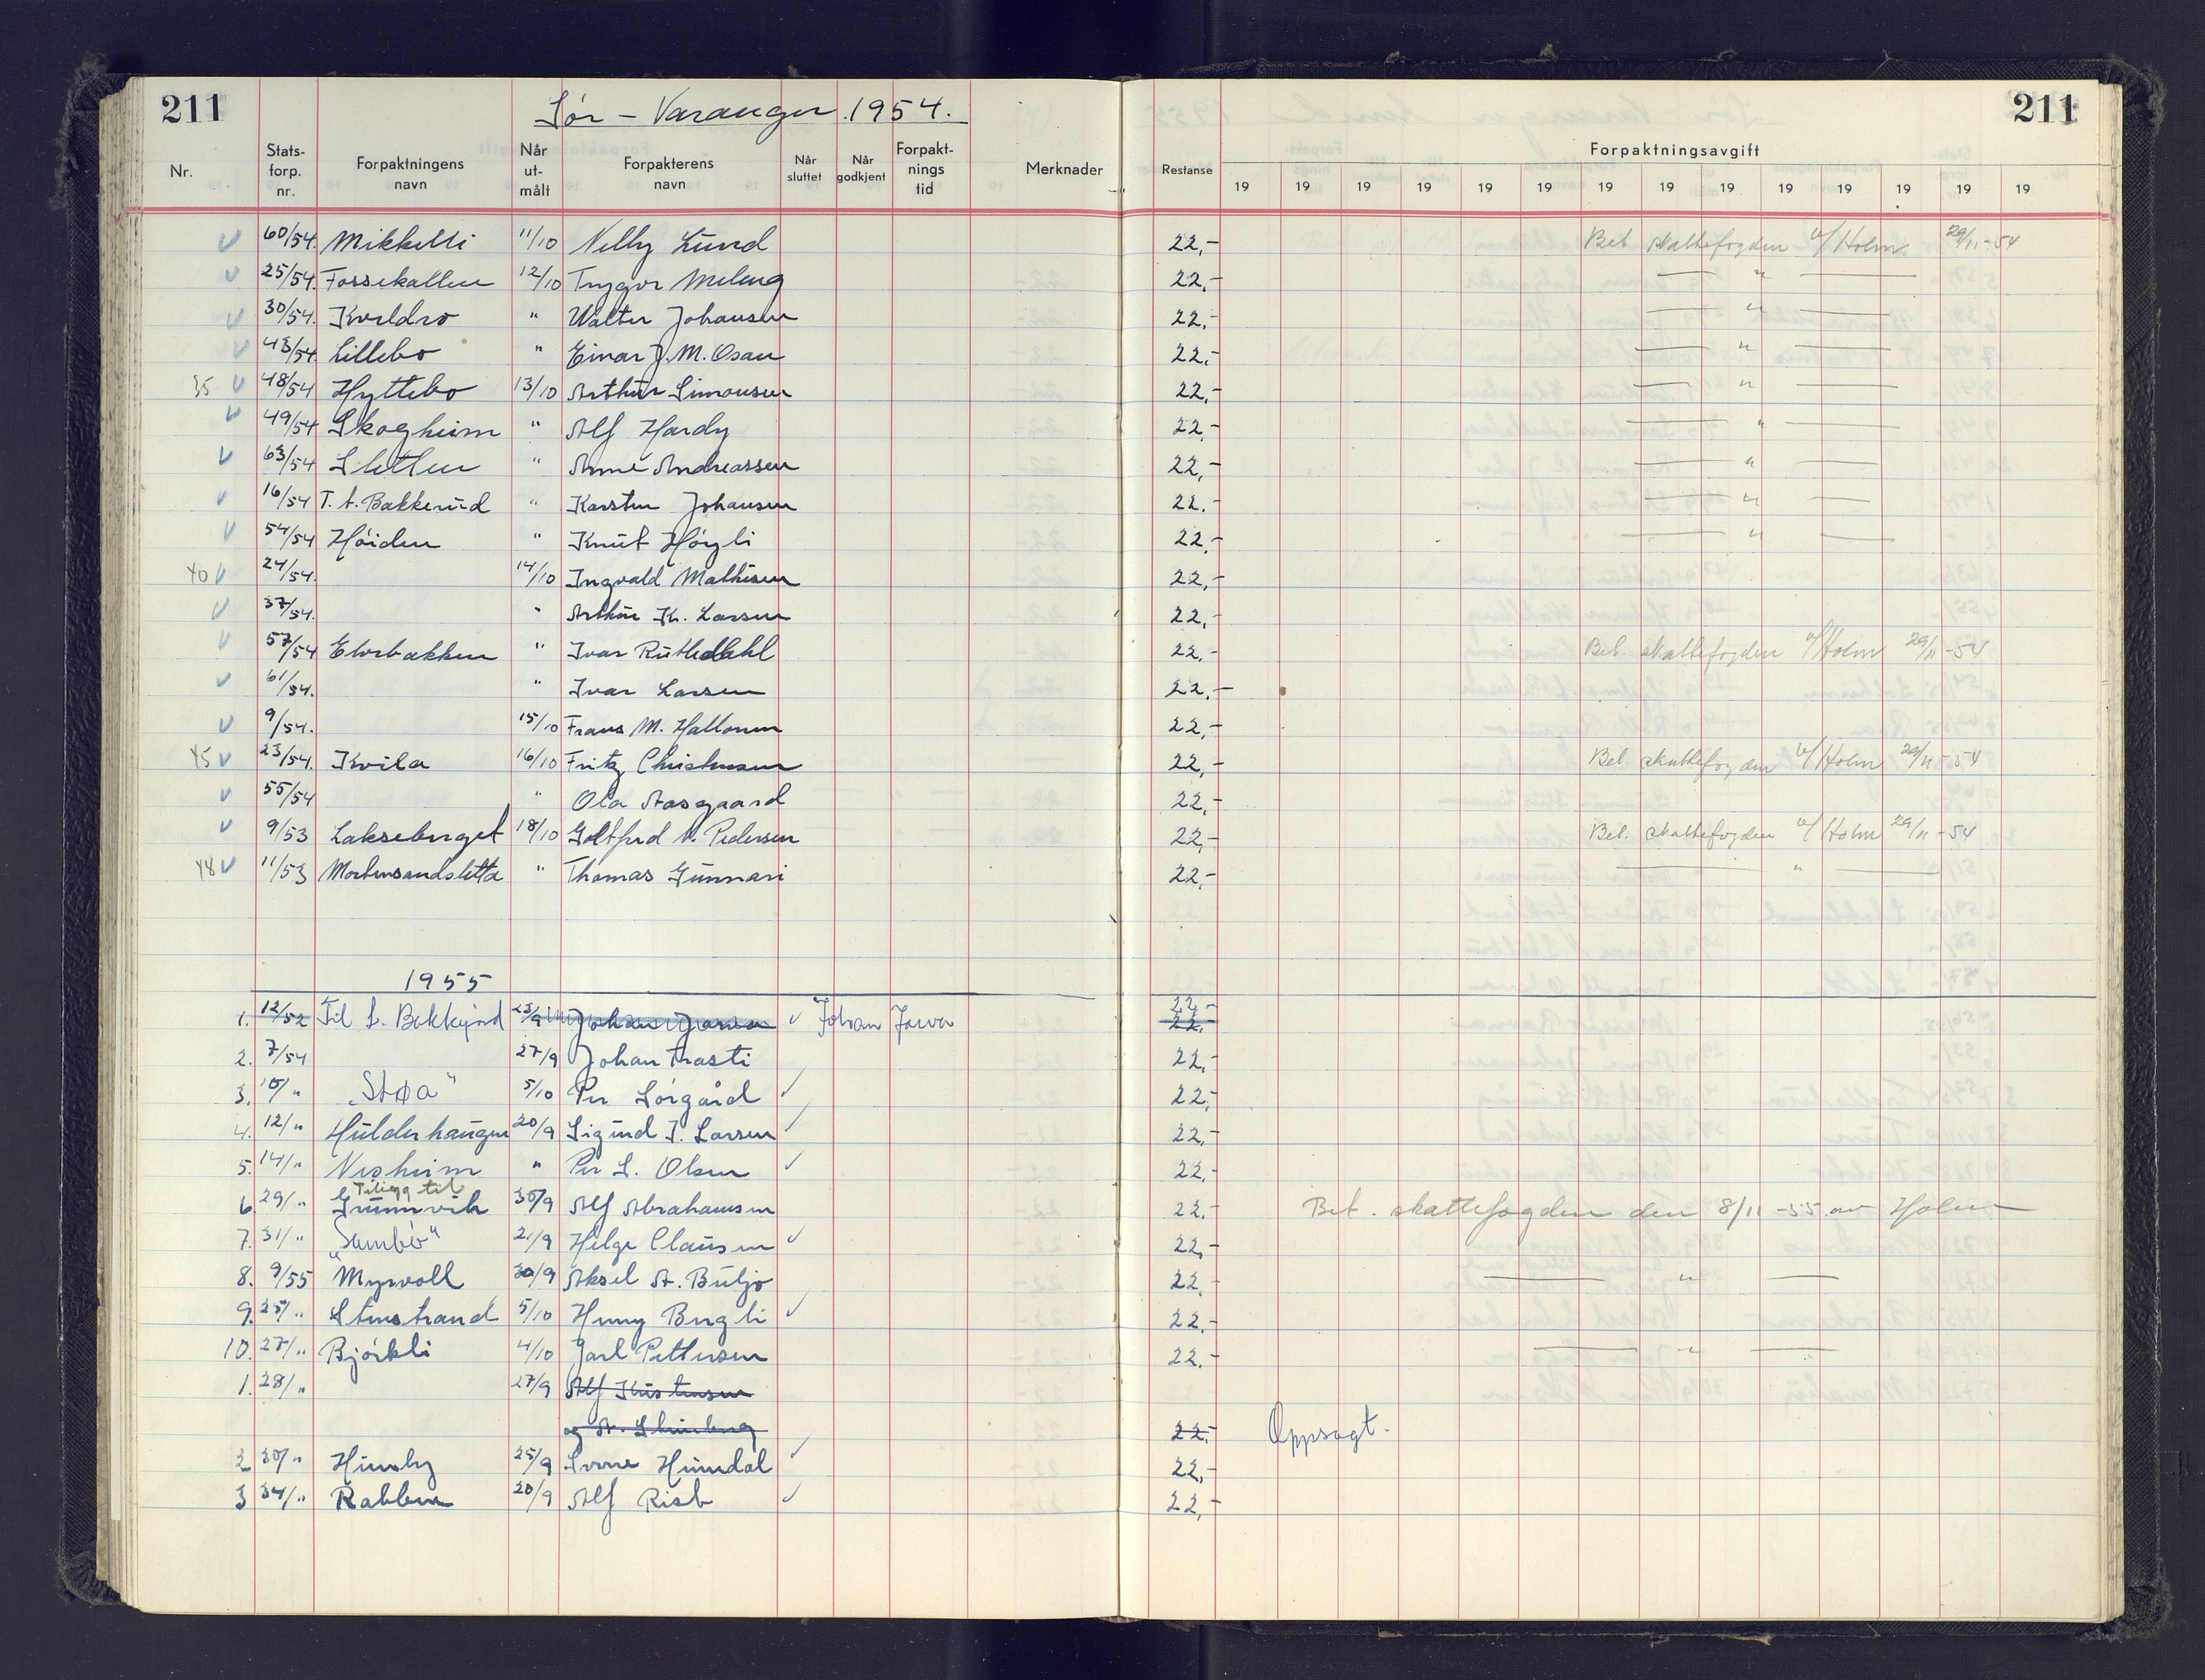 211 Sør - Varanger 1954. 211
Nr. Stats-forp. nr. Forpaktningens navn Når ut-målt Forpakterens navn Når sluttet Når godkjent Forpakt-nings tid Merknader Restanse Forpaktningsavgift
19 19 19 19 19 19 19 19 19 19 19 19 19 19
V 60/54. Mikkelli 11/10 Nelly Lund 22,- Bet skattefogden v/Holm. 29/11-54
V 25/54. Fossekallen 12/10 Trygve Meleng 22,- — " —
V 30/54. Kveldro " Walter Johansen 22,- — " —
V 43/54. Lillebo " Einar J. M. Osan 22,- — " —
35 V 48/54 Hyttebo 13/10 Arthur Simonsen 22,- — " —
V 49/54 Skogheim " Alf Hardy 22,- — " —
V 63/54 Sletten " Arne Andreassen 22,- — " —
V 16/54 T. t. Bakkerud " Karsten Johansen 22.- — " —
V 54/54 Høiden " Knut Høgli 22,- — " —
40 V 24/54. 14/10 Ingvald Mathisen 22,-
V 37/54. " Arthur K. Larsen 22,-
V 57/54 Elvebakken " Ivar Ruthdahl 22,- Bet. skattefogden v/Holm 29/11-54
V 61/54. " Ivar Larsen 22,-
V 9/54. 15/10 Frans M. Hallonen 22,-
45 V 23/54. Kvila 16/10 Fritz Christensen 22,- Bet skattefogden v/Holm 29/11-54
V 55/54 " Ola Aasgaard 22,-
V 9/53 Lakseberget 18/10 Gottfred V. Pedersen 22,- Bet. skattefogden v/Holm 29/11-54
48 V 11/53 Mortensandsletta " Thomas Gunnari 22,- — " —
1955
1. 12/52 Til L. Bekkejord 23/9 V Johan Jarva 22,- 22,-
2. 7/54 27/9 Johan Trasti 22,-
3. 10/" „Støa" 5/10 Per Sørgård ✓ 22,-
4. 12/" Hulderhaugen 20/9 Sigurd J. Larsen ✓ 22,-
5. 14/" Nesheim " Per L. Olsen ✓ 22,-
6. 29/" Tillegg til Grunnvik 30/9 Alf Abrahamsen 22.- Bet. skattefogden den 8/11-55 av Holm
7. 31/" „Sambo" 21/9 Helge Clausen ✓ 22,-
8. 9/55 Myrvoll 30/9 Aksel A. Buljo 22.- — " —
9. 25/" Stenstrand 5/10 Henry Bergli ✓ 22.-
10. 27/" Bjørkli 4/10 Jarl Pettersen 22.- — " —
1. 28/" 27/9 Alf Kristensen
og A. 22.- Oppsagt.
2 30/" Husby 25/9 Sverre Hundal ✓ 22,-
3 34/" Rabben 20/9 Alf Risb ✓ 22,-